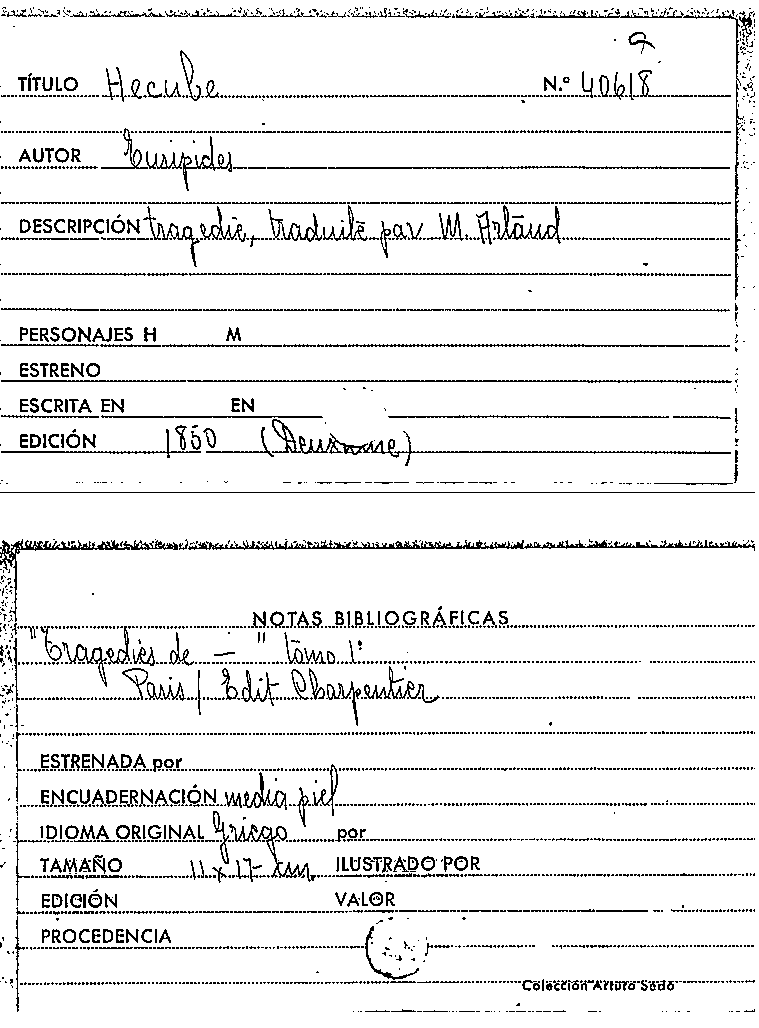 a
TÍTULO Hecube N.º 40618
AUTOR Euripides
DESCRIPCIÓN tragedie, traduite par M. Artaud
PERSONAJES H M
ESTRENO
ESCRITA EN EN
EDICIÓN 1850 (Deuxieme)
NOTAS BIBLIOGRÁFICAS
"Tragedies de — " tomo 1º
Paris / Edit Charpentier
ESTRENADA por
ENCUADERNACIÓN media piel
IDIOMA ORIGINAL Griego por
TAMAÑO 11 x 17 cm. ILUSTRADO POR
EDICIÓN VALOR
PROCEDENCIA
Colección Arturo Sedó